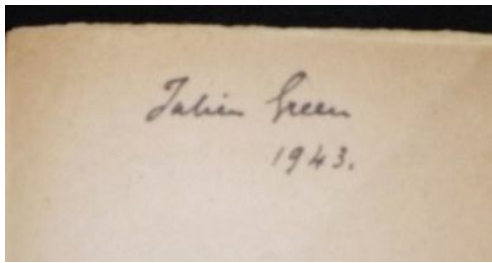 Julien Green
1943.